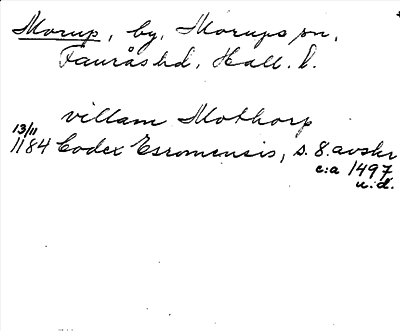 Morup, by, Morups sn,
Fauråshd, Hall. l.
villam Mothorp
13/11
1184 Codex Esromensis, s. 8. avskr
c:a 1497,
u.d.